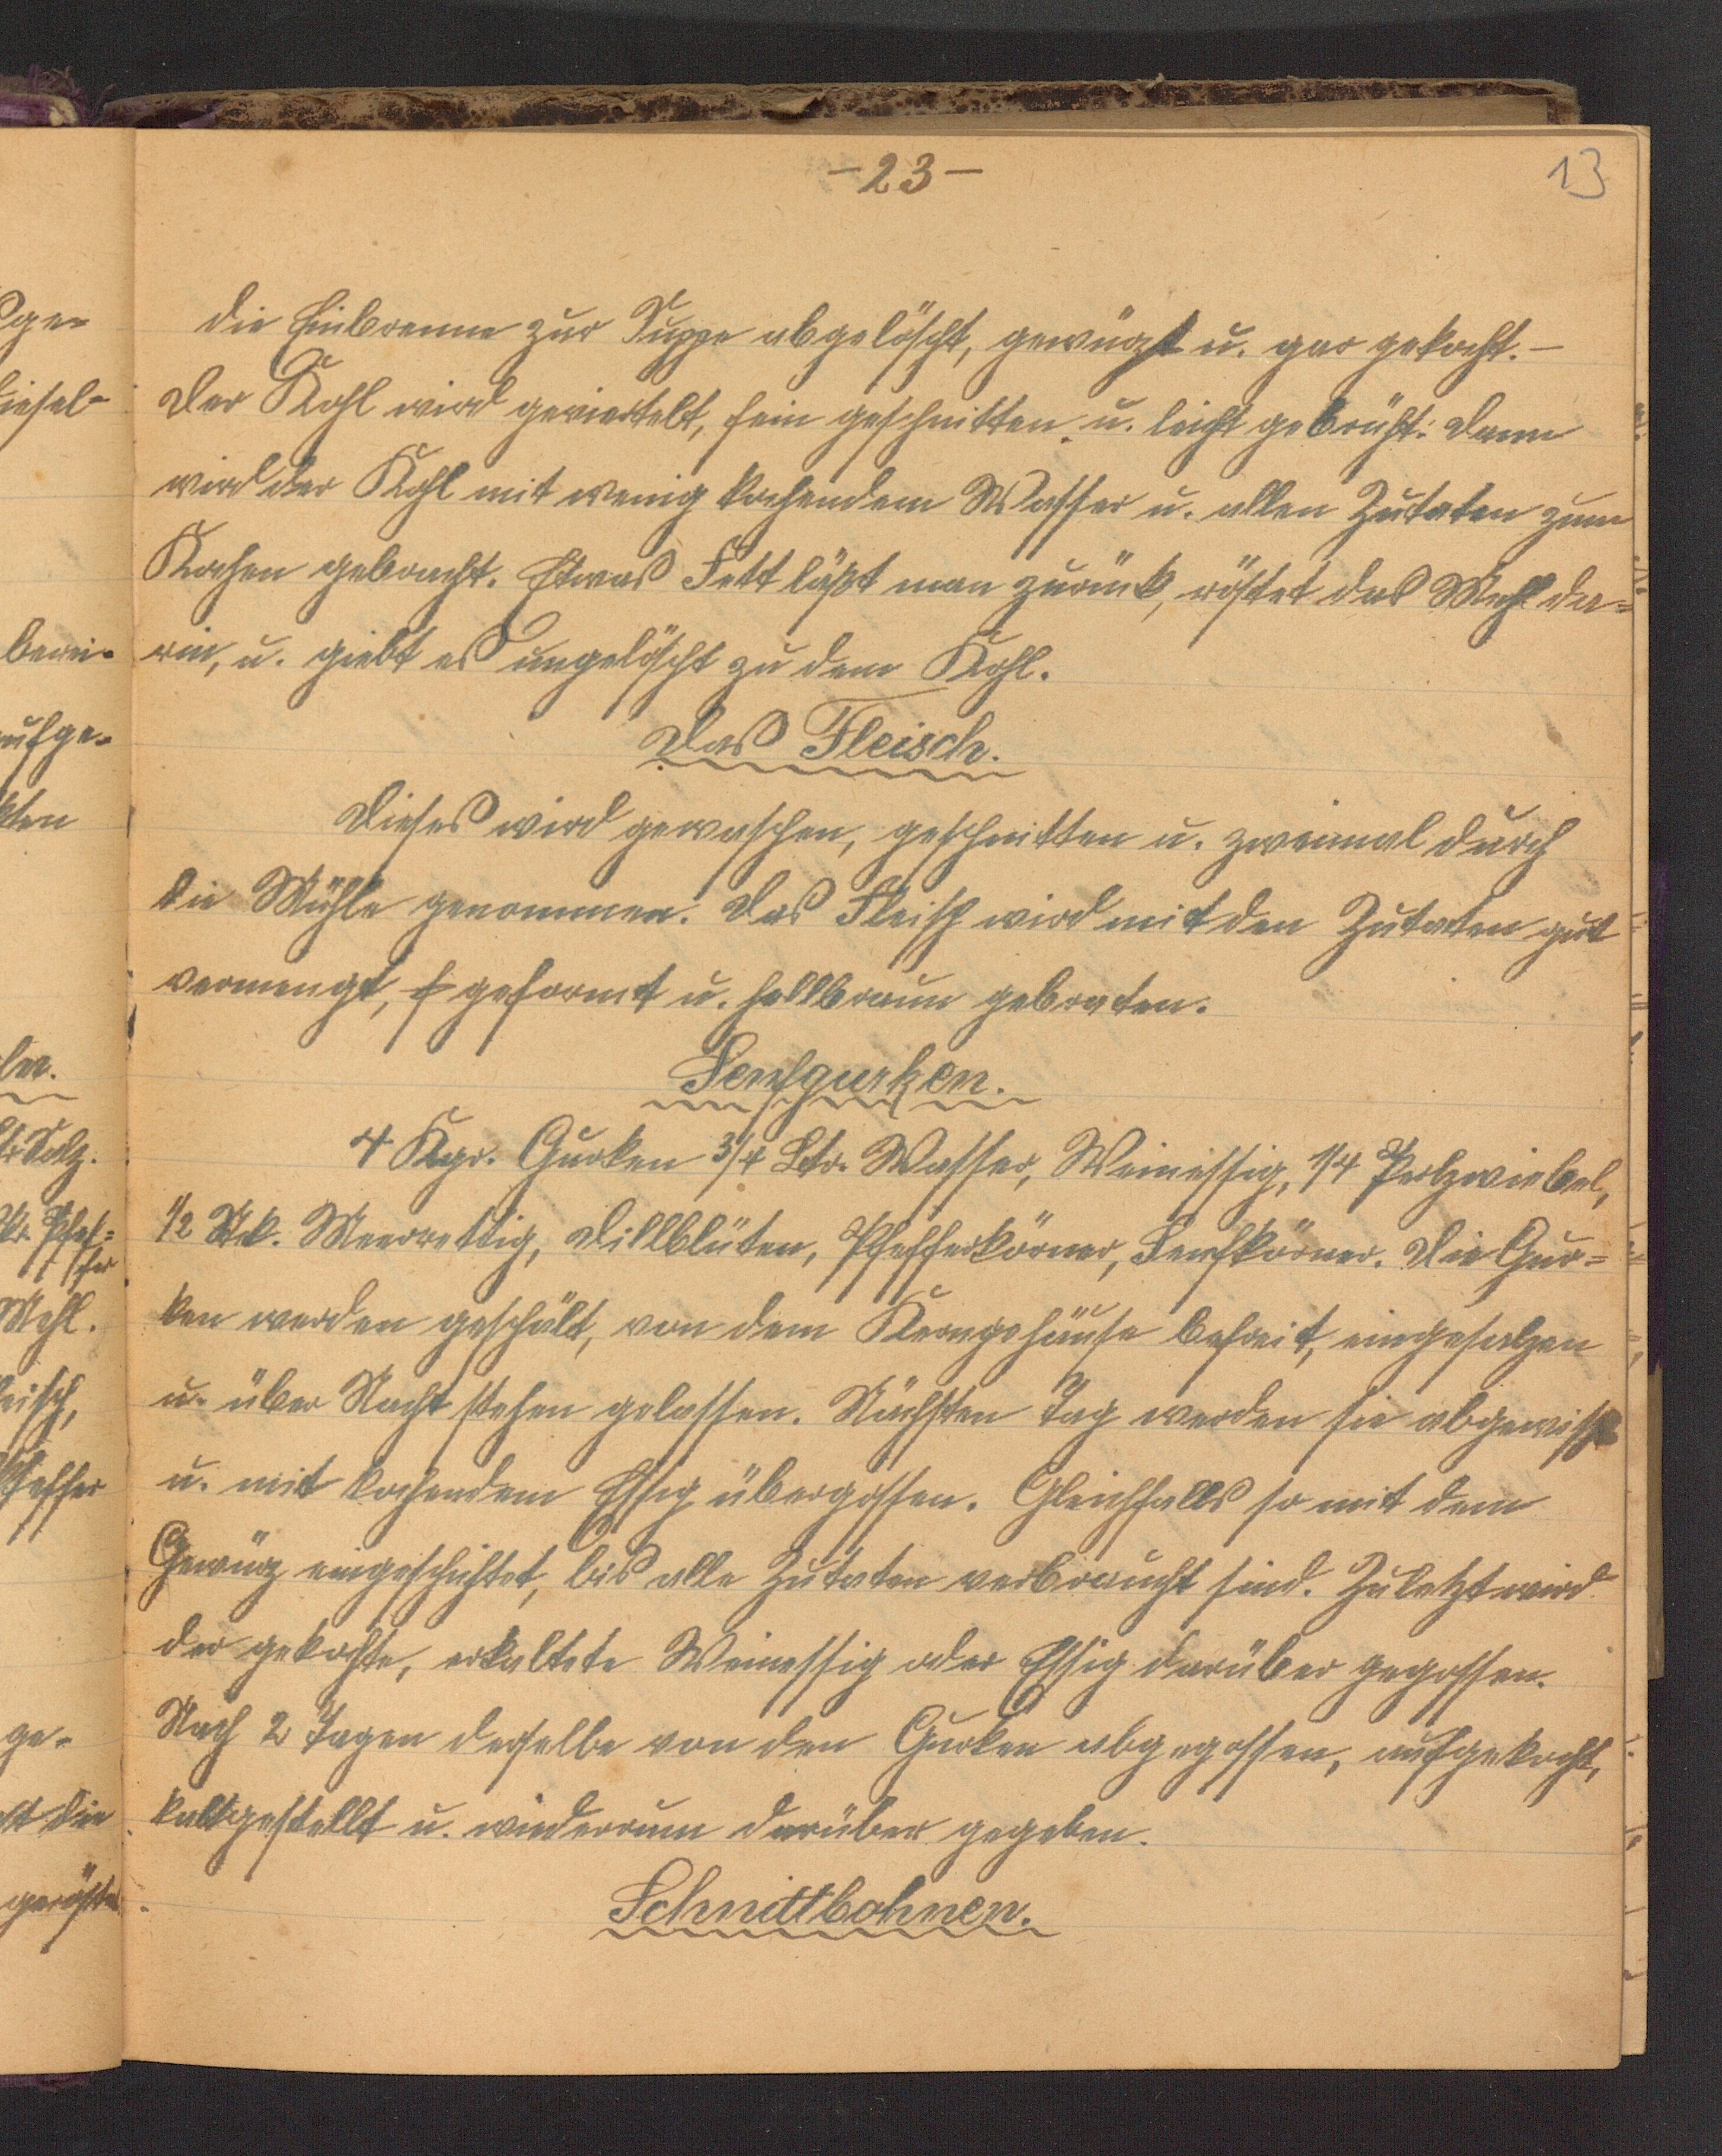 -23-
13
die Einbrenne zur Suppe abgelöscht, gewürzt u. gar gekocht. -
Der Kohl wird geviertelt, fein geschnitten u. leicht gebrüht: dann
wird der Kohl mit wenig kochendem Wasser u. allen Zutaten zum
Kochen gebracht. Etwas Fett läßt man zurück, röstet das Mehl da=
rin, u. giebt es ungelöscht zu dem Kohl.
Das Fleisch.
Dieses wird gewaschen, geschnitten u. zweimal durch
die Mühle genommen. Das Fleisch wird mit den Zutaten gut
vermengt, geformt u. hellbraun gebraten.
Senfgurken.
4 Kgr. Gurken 3/4 Ltr. Wasser, Weinessig, 1/4 Perlzwiebel,
1/2 Stk. Meerrettig, Dillblüten, Pfefferkörner, Senfkörner. Die Gur=
ken werden geschält, von dem Kerngehäuse befreit, eingesalzen
u. über Nacht stehen gelassen. Nächsten Tag werden sie abgewischt
u. mit kochendem Essig übergossen. Gleichfalls so mit dem
Gewürz eingeschichtet, bis alle Zutaten verbraucht sind. Zuletzt wird
der gekochte, erkaltete Weinessig oder Essig darüber gegossen.
Nach 2 Tagen derselbe von den Gurken abgegossen, aufgekocht,
kaltgestellt u. wiederrum darüber gegeben.
Schnittbohnen.